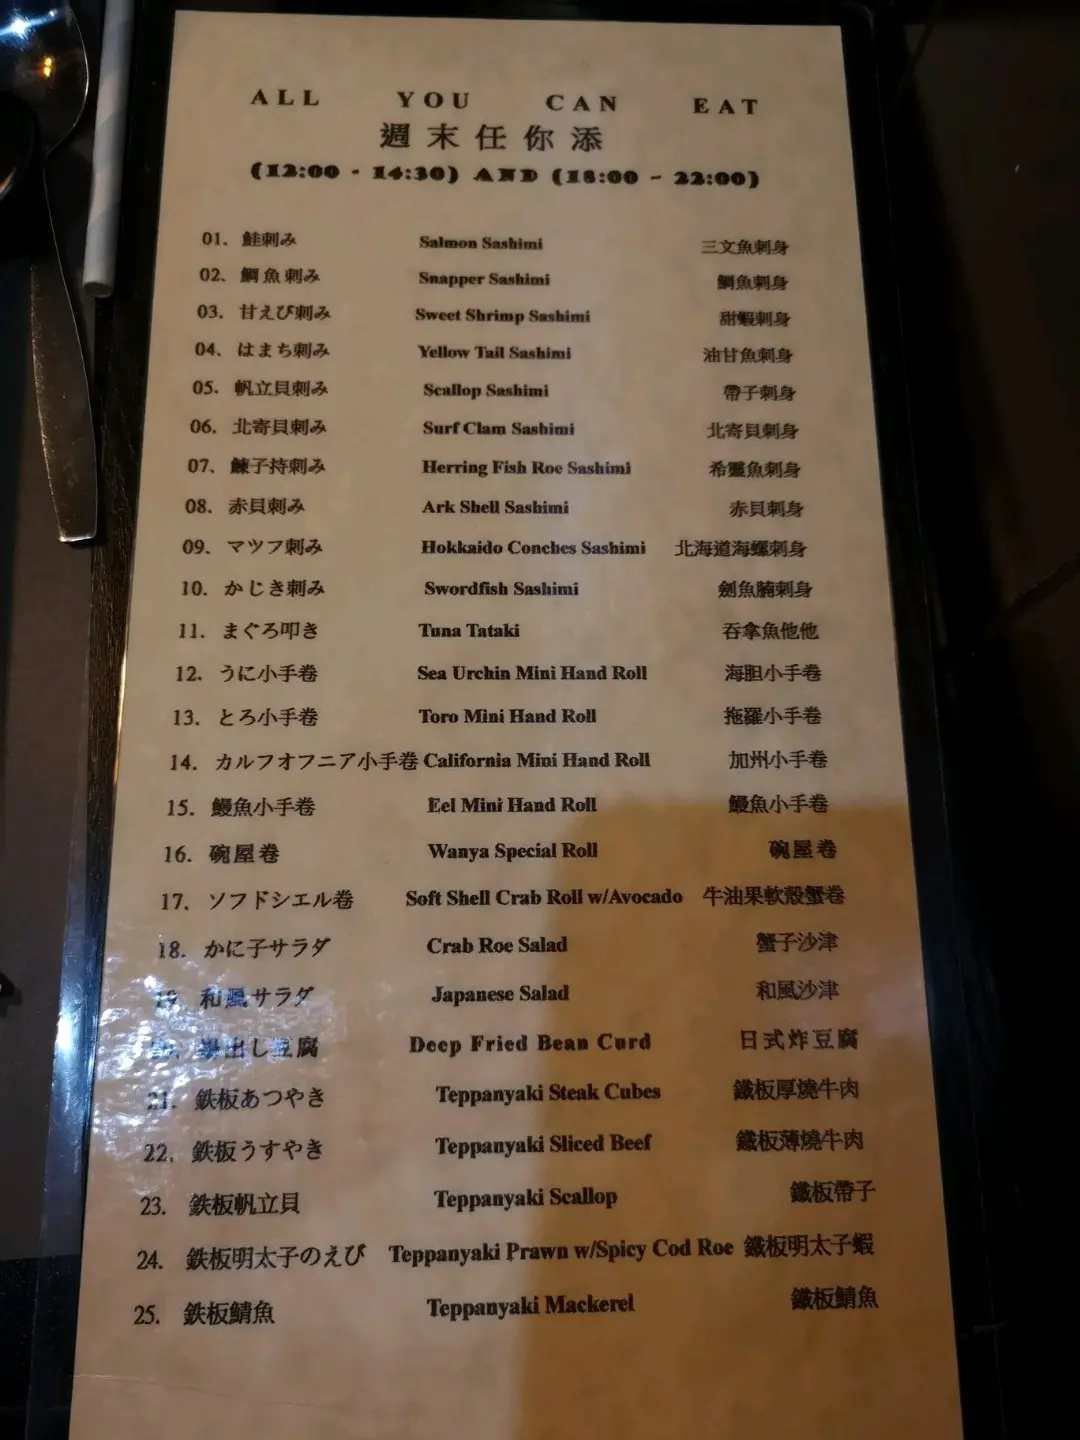 ALL YOU CAN EAT
週末任你添
(12:00 - 14:30) AND (18:00 - 22:00)
01. 鮭刺み Salmon Sashimi 三文魚刺身
02. 鯛魚刺み Snapper Sashimi 鯛魚刺身
03. 甘えび刺み Sweet Shrimp Sashimi 甜蝦刺身
04. はまち刺み Yellow Tail Sashimi 油甘魚刺身
05. 帆立貝刺み Scallop Sashimi 帶子刺身
06. 北寄貝刺み Surf Clam Sashimi 北寄貝刺身
07. 鰊子持刺み Herring Fish Roe Sashimi 希靈魚刺身
08. 赤貝刺み Ark Shell Sashimi 赤貝刺身
09. マツフ刺み Hokkaido Conches Sashimi 北海道海螺刺身
10. かじき刺み Swordfish Sashimi 劍魚腩刺身
11. まぐろ叩き Tuna Tataki 吞拿魚他他
12. うに小手卷 Sea Urchin Mini Hand Roll 海胆小手卷
13. とろ小手卷 Toro Mini Hand Roll 拖羅小手卷
14. カルフオフニア小手卷 California Mini Hand Roll 加州小手卷
15. 鰻魚小手卷 Eel Mini Hand Roll 鰻魚小手卷
16. 碗屋卷 Wanya Special Roll 碗屋卷
17. ソフドシエル卷 Soft Shell Crab Roll w/Avocado 牛油果軟殼蟹卷
18. かに子サラダ Crab Roe Salad 蟹子沙津
19. 和風サラダ Japanese Salad 和風沙津
出し豆腐 Deep Fried Bean Curd 日式炸豆腐
21. 鉄板あつやき Teppanyaki Steak Cubes 鐵板厚燒牛肉
22. 鉄板うすやき Teppanyaki Sliced Beef 鐵板薄燒牛肉
23. 鉄板帆立貝 Teppanyaki Scallop 鐵板帶子
24. 鉄板明太子のえび Teppanyaki Prawn w/Spicy Cod Roe 鐵板明太子蝦
25. 鉄板鯖魚 Teppanyaki Mackerel 鐵板鯖魚